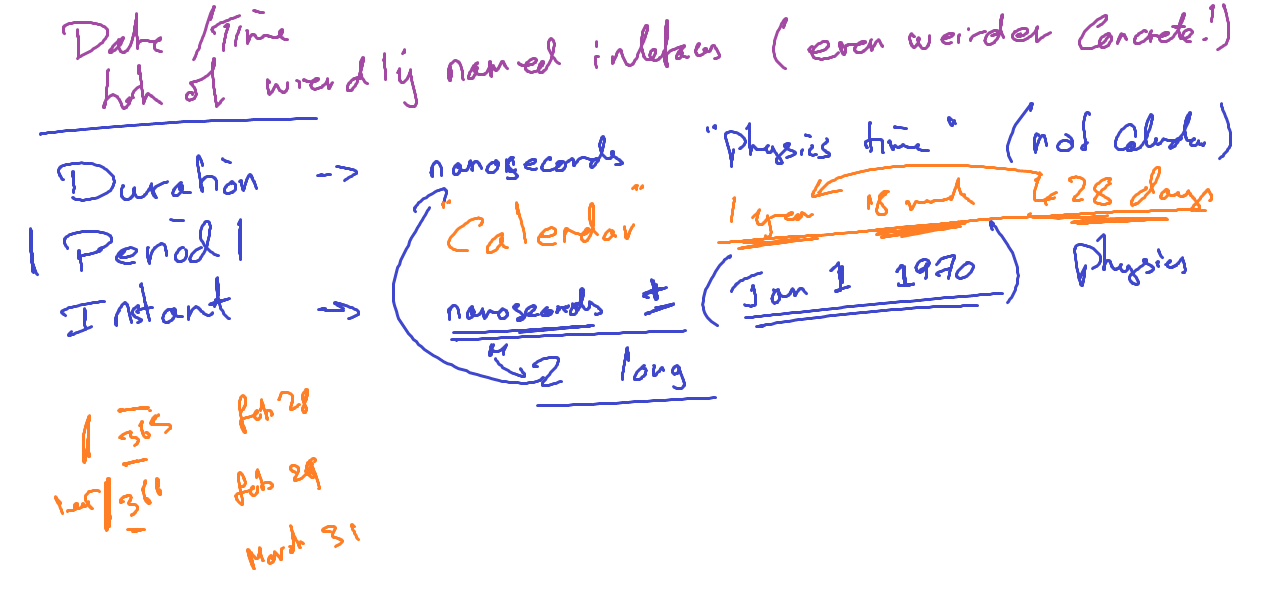 Date / Time
lots of wierdly named interfaces (even weirder Concrete!)
Duration -> nanoseconds "Physics time" (not Calendar)
| Period | "Calendar" 1 year 18 month & 28 days
Instant -> nanoseconds ± (Jan 1 1970) Physics
2 long
365 Feb 28
leap 366 Feb 29
March 31